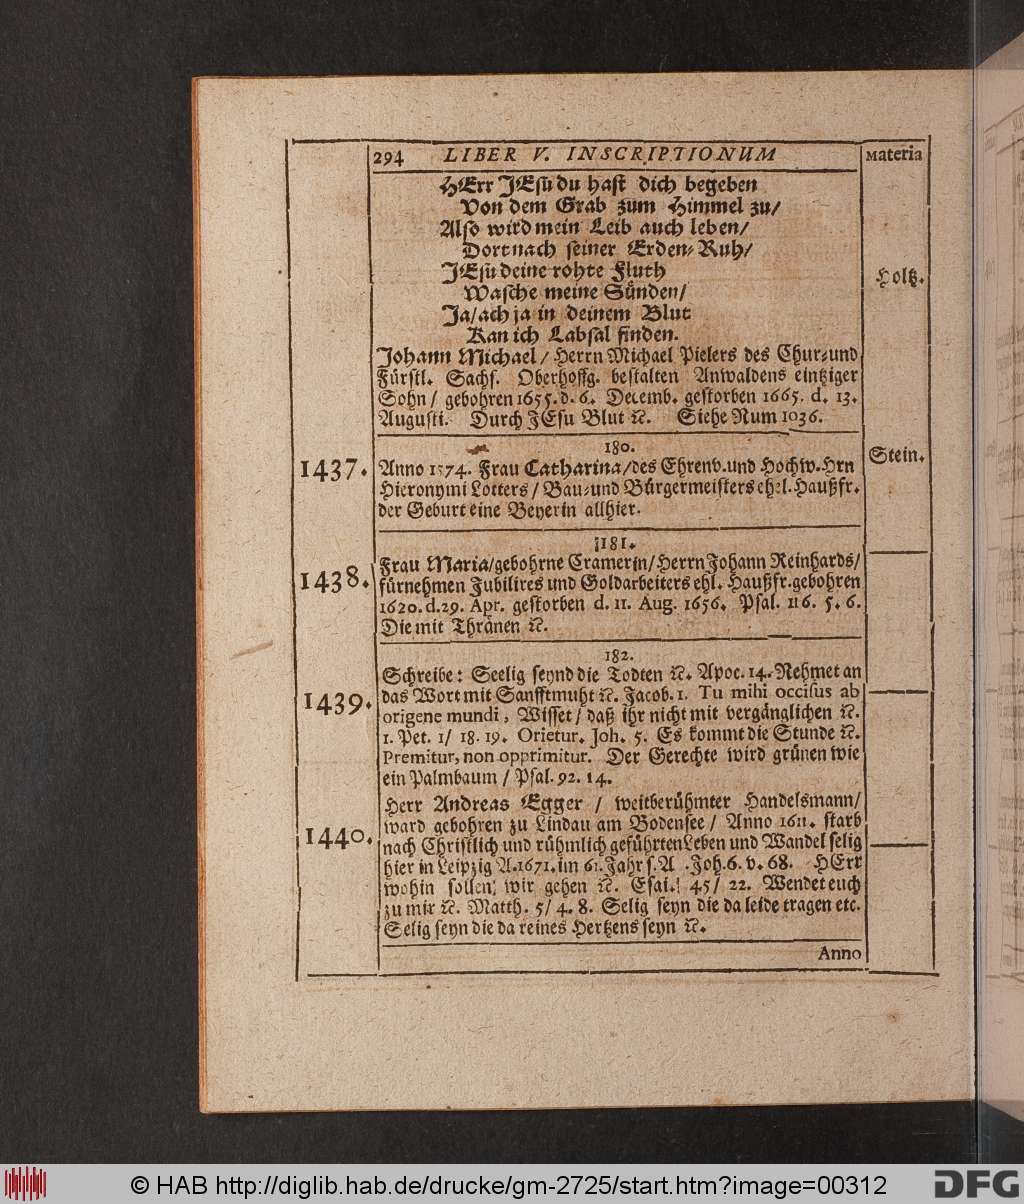 294 LIBER V. INSCRIPTIONUM Materia
HErr JEsu du hast dich begeben
Von dem Grab zum Himmel zu/
Also wird mein Leib auch leben/
Dort nach seiner Erden-Ruh/
JEsu deine rohte Fluth
Holtz.
Wasche meine Sünden/
Ja/ach ja in deinem Blut
Kan ich Labsal finden.
Johann Michael / Herrn Michael Pielers des Chur-und
Fürstl. Sachs. Oberhoffg. bestalten Anwaldens eintziger
Sohn / gebohren 1655. d. 6. Decemb. gestorben 1665. d. 13.
Augusti. Durch JEsu Blut ꝛc. Siehe Num 1036.
180.
Stein.
1437. Anno 1574. Frau Catharina/des Ehrenv.und Hochw.Hrn
Hieronymi Lotters / Bau-und Bürgermeisters ehel.Haußfr.
der Geburt eine Beyerin allhier.
181.
Frau Maria/gebohrne Cramerin/Herrn Johann Reinhards/
1438. fürnehmen Jubilires und Goldarbeiters ehl. Haußfr.gebohren
1620. d.29. Apr. gestorben d. 11. Aug. 1656. Psal. 116. 5. 6.
Die mit Thränen ꝛc.
182.
Schreibe: Seelig seynd die Todten ꝛc. Apoc. 14. Nehmet an
1439. das Wort mit Sanfftmuht ꝛc. Jacob. 1. Tu mihi occisus ab
origene mundi, Wisset / daß ihr nicht mit vergänglichen ꝛc.
1. Pet. 1/ 18. 19. Orietur. Joh. 5. Es kommt die Stunde ꝛc.
Premitur, non opprimitur. Der Gerechte wird grünen wie
ein Palmbaum / Psal. 92. 14.
Herr Andreas Egger / weitberühmter Handelsmann/
1440. ward gebohren zu Lindau am Bodensee / Anno 1611. starb
nach Christlich und rühmlich geführten Leben und Wandel selig
hier in Leipzig A.1671.im 61.Jahr s.A .Joh.6. v. 68. HErr
wohin sollen wir gehen ꝛc. Esai. 45/ 22. Wendet euch
zu mir ꝛc. Matth. 5/ 4. 8. Selig seyn die da leide tragen etc.
Selig seyn die da reines Hertzens seyn ꝛc.
Anno
© HAB http://diglib.hab.de/drucke/gm-2725/start.htm?image=00312 DFG